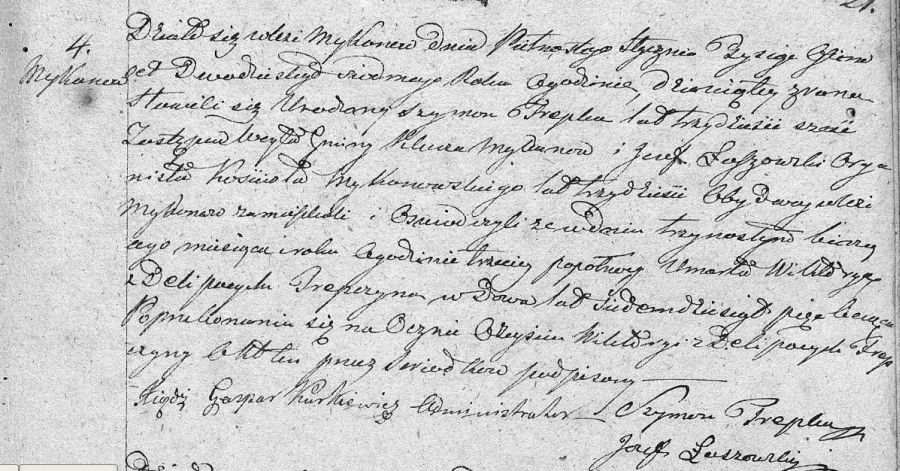 21.
4.
Mykanow
Działo się w wsi Mykanow dnia Pietnastego Stycznia Tysiąc Ośm
set Dwudziestego siodmego Roku o godzinie dziewiątey zrana
Stawili się Urodzony Szymon Trepka lat trzydzieści sześć
Zastępca Woyta Gminy Klucza Mykanow i Jozef Łaszowski Orga
nista Kościoła Mykanowskiego lat trzydzieści Obydway w wsi
Mykanow zamieszkali i Oświadczyli że w dniu trzynastym bieżą
cego miesiąca i roku o godzinie trzeciey popołudniu Umarła Wiktorya
z Trepczyna wdowa lat siedemdziesiąt pięć
Poprzekonaniu się naocznie o zeyściu Wiktoryi z Trep
czyny Akt ten przez świadków podpisany
Xiądz Gaspar Kurkiewicz Administrator Szymon Trepka
Jozef Łaszowski